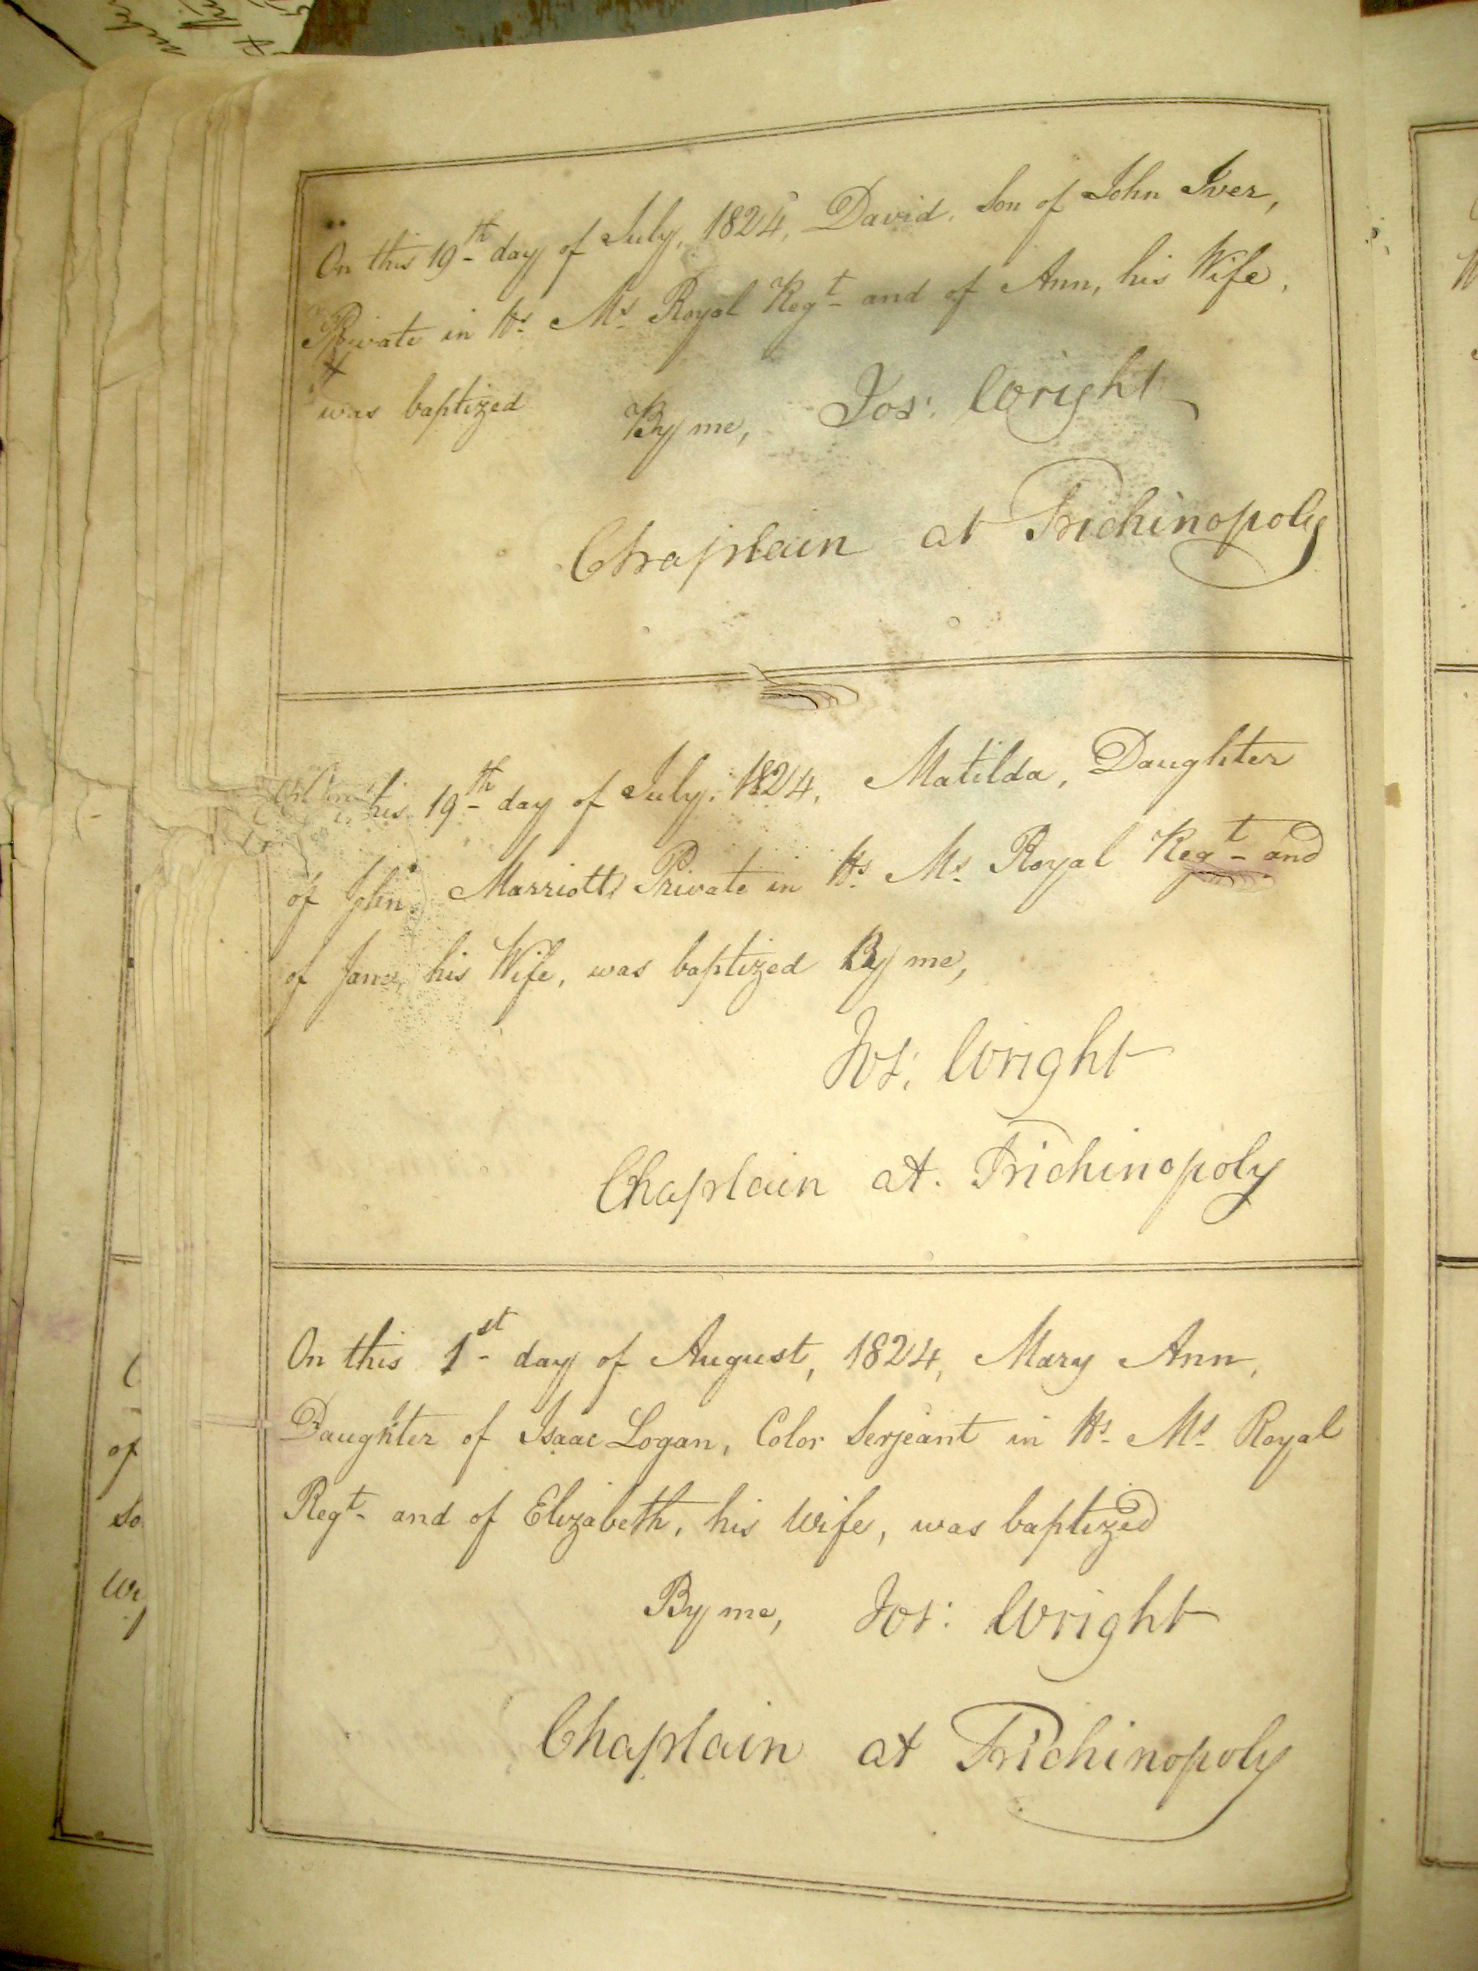 On this 19th day of July, 1824, David, Son of John Iver,
Private in Hs. Ms. Royal Regt. and of Ann, his Wife,
was baptized By me, Jos: Wright
Chaplain at Trichinopoly
this 19th day of July, 1824, Matilda, Daughter
of John Marriott Private in Hs. Ms. Royal Regt. and
of Jane, his Wife, was baptized By me,
Jos: Wright
Chaplain at Trichinopoly
On this 1st day of August, 1824, Mary Ann,
Daughter of Isaac Logan, Color Serjeant in Hs. Ms. Royal
Regt. and of Elizabeth, his Wife, was baptized
By me, Jos: Wright
Chaplain at Trichinopoly